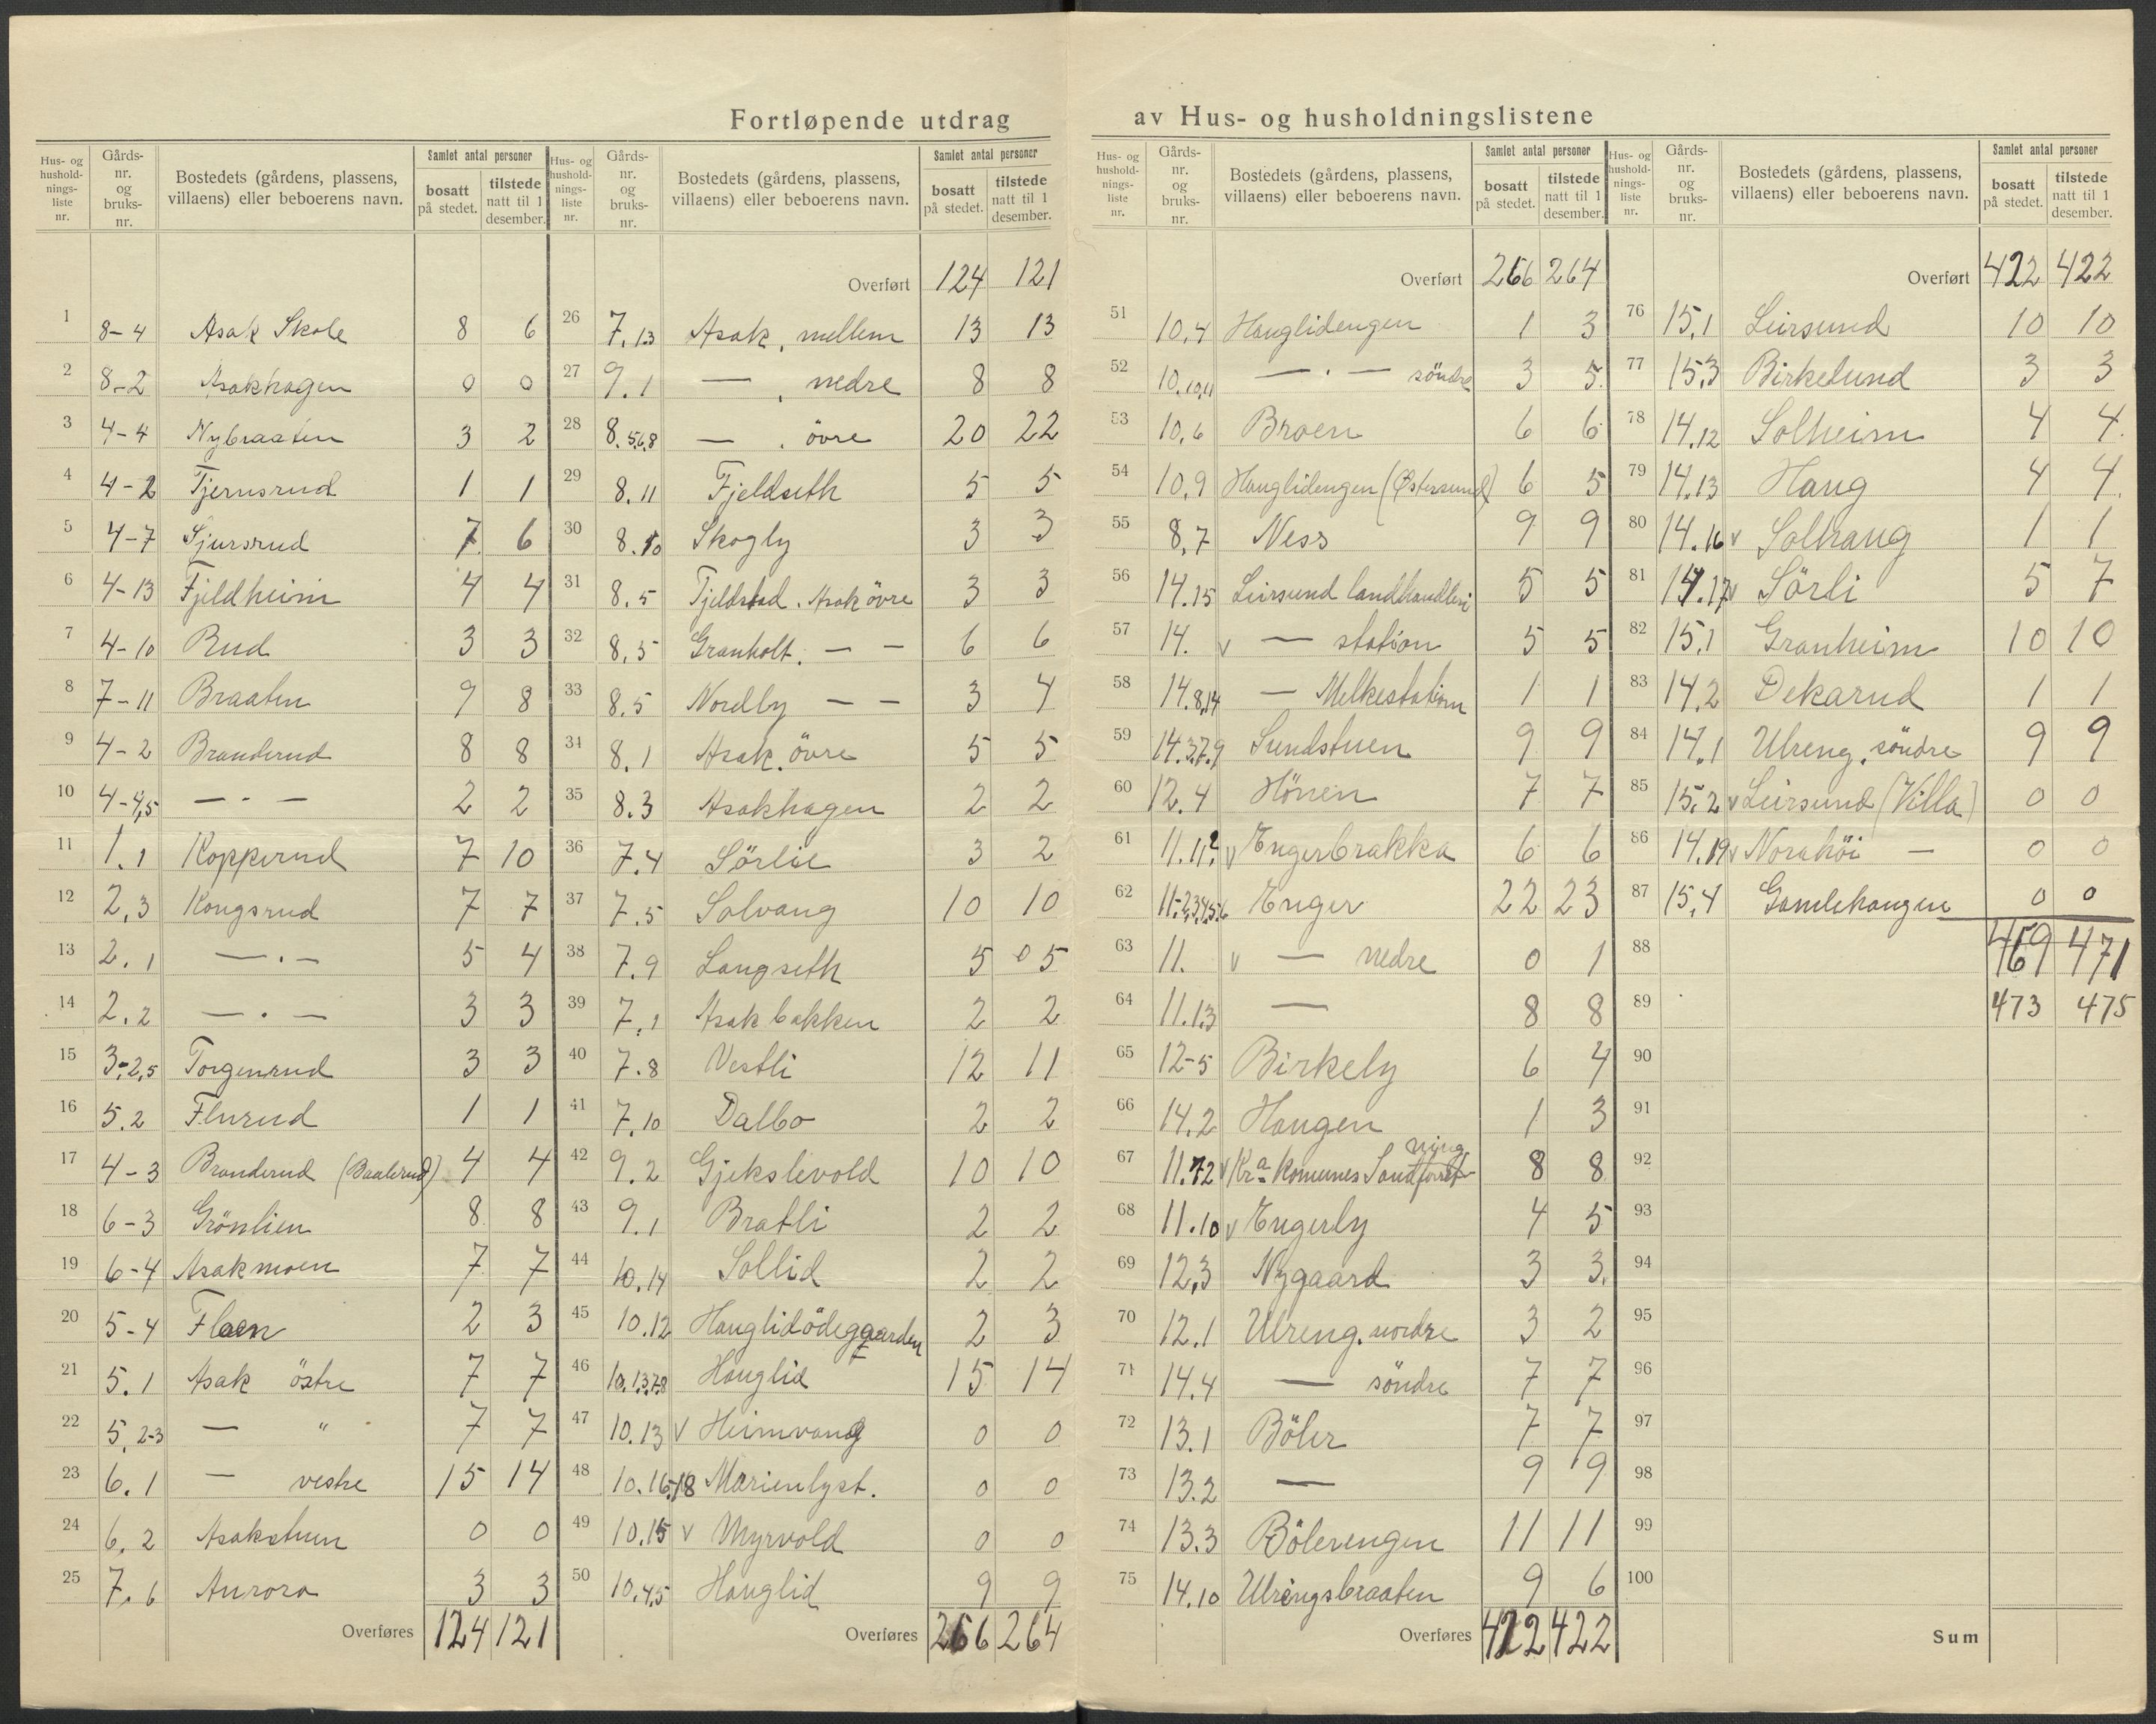 Fortløpende utdrag av Hus- og husholdningslistene
Hus- og hushold-nings-liste nr. | Gårds-nr. og bruks-nr. | Bostedets (gårdens, plassens, villaens) eller beboerens navn. | Samlet antal personer | bosatt på stedet. | tilstede natt til 1 desember.
1 8-4 Asak Skole 8 6
2 8-2 Asakhagen 0 0
3 4-4 Nybraaten 3 2
4 4-2 Tjernsrud 1 1
5 4-7 Sjursrud 7 6
6 4-13 Fjeldheim 4 4
7 4-10 Rud 3 3
8 7-11 Braaten 9 8
9 4-2 Branderud 8 8
10 4-4,5 — - — 2 2
11 1.1 Kopperud 7 10
12 2,3 Kongsrud 7 7
13 2.1 — . — 5 4
14 2.2 — . — 3 3
15 3-2,5 Torgenrud 3 3
16 5.2 Flurud 1 1
17 4-3 Branderud (Baalerud) 4 4
18 6-3 Grönlien 8 8
19 6-4 Asakmoen 7 7
20 5-4 Flaen 2 3
21 5.1 Asak östre 7 7
22 5,2-3 — " 7 7
23 6.1 — vestre 15 14
24 6.2 Asakstuen 0 0
25 7.6 Aurora 3 3
Overføres 124 121
Hus- og hushold-nings-liste nr. | Gårds-nr. og bruks-nr. | Bostedets (gårdens, plassens, villaens) eller beboerens navn. | Samlet antal personer | bosatt på stedet. | tilstede natt til 1 desember.
Overført 124 121
26 7.13 Asak, mellem 13 13
27 9.1 — , nedre 8 8
28 8.5,6,8 — . övre 20 22
29 8.11 Fjeldseth 5 5
30 8.10 Skogly 3 3
31 8.5 Fjeldstad. Asak övre 3 3
32 8,5 Granholt. — — 6 6
33 8.5 Nordby — — 3 4
34 8.1 Asak. övre 5 5
35 8.3 Asakhagen 2 2
36 7.4 Sörlie 3 2
37 7.5 Solvang 10 10
38 7.9 Langseth 5 5
39 7.1 Asakbakken 2 2
40 7.8 Vestli 12 11
41 7.10 Dalbo 2 2
42 9.2 Gjekslevold 10 10
43 9.1 Bratli 2 2
44 10.14 Sollid 2 2
45 10.12 Hauglidödeggaarden 2 3
46 10.1,3,7,8 Hauglid 15 14
47 10.13 v Heimvang 0 0
48 10.16-18 Marienlyst. 0 0
49 10.15 v Myrvold 0 0
50 10.4,5 Hauglid 9 9
Overføres 266 264
Hus- og hushold-nings-liste nr. | Gårds-nr. og bruks-nr. | Bostedets (gårdens, plassens, villaens) eller beboerens navn. | Samlet antal personer | bosatt på stedet. | tilstede natt til 1 desember.
Overført 266 264
51 10,4 Hauglidengen 1 3
52 10.10,11 — . — söndre 3 5
53 10,6 Broen 6 6
54 10,9 Hauglidengen (Østersund) 6 5
55 8,7 Ness 9 9
56 14.15 Leirsund landhandleri 5 5
57 14. v — station 5 5
58 14.8,14 — Melkestation 1 1
59 14.3,7,9 Sundstuen 9 9
60 12.4 Hönen 7 7
61 11.11,2 v Engerbrakka 6 6
62 11-2,3,4,5,6 Enger 22 23
63 11. v — nedre 0 1
64 11.13 — 8 8
65 12-5 Birkely 6 4
66 14.2 Haugen 1 3
67 11.72 v Kra Komunes Sandforretning 8 8
68 11.10 v Engerly 4 5
69 12,3 Nygaard 3 3
70 12.1 Ulreng. nordre 3 2
71 14.4 — söndre 7 7
72 13.1 Böler 7 7
73 13.2 — 9 9
74 13.3 Bölerengen 11 11
75 14.10 Ulrengsbraaten 9 6
Overføres 422 422
Hus- og hushold-nings-liste nr. | Gårds-nr. og bruks-nr. | Bostedets (gårdens, plassens, villaens) eller beboerens navn. | Samlet antal personer | bosatt på stedet. | tilstede natt til 1 desember.
Overført 422 422
76 15.1 Leirsund 10 10
77 15.3 Birkelund 3 3
78 14.12 Solheim 4 4
79 14.13 Haug 4 4
80 14.16 v Solhaug 1 1
81 14.17 v Sörli 5 7
82 15.1 Granheim 10 10
83 14.2 Dekarud 1 1
84 14.1 Ulreng. söndre 9 9
85 15.2 v Leirsund (Villa) 0 0
86 14.19 v Norahöi — 0 0
87 15.4 Gamlehaugen 0 0
88 469 471
89 473 475
90
91
92
93
94
95
96
97
98
99
100
Sum